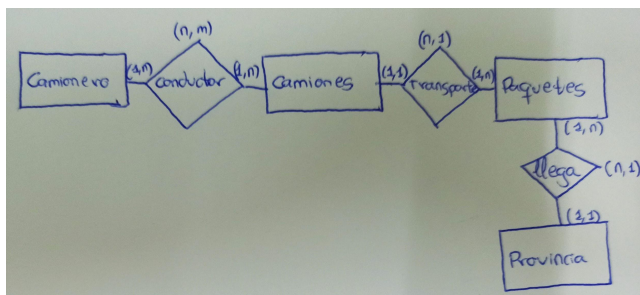 (n,m)
(n,1)
Camionero
(1,n)
Conductor
(1,n)
Camiones
(1,1)
Transporte
(1,n)
Paquetes
(1,n)
llega
(n,1)
(1,1)
Provincia